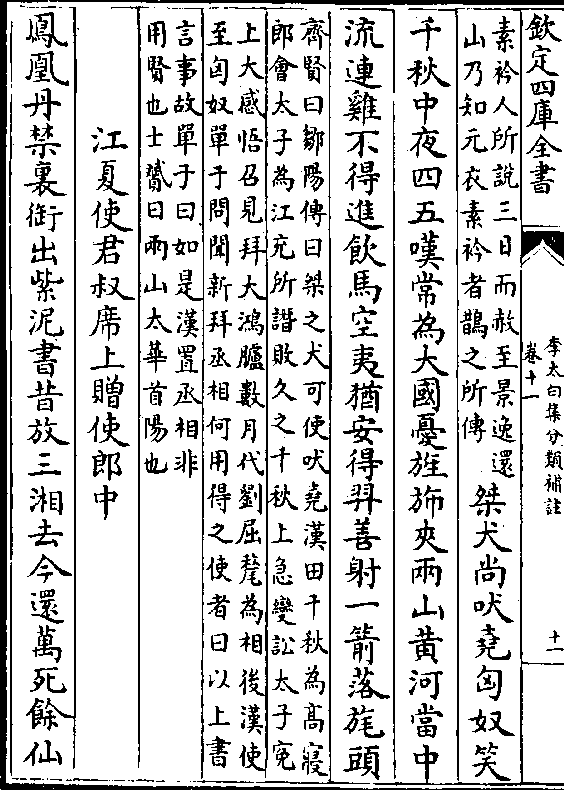 欽定四庫全書
李太白集分類補註
卷十一
十一
素衿人所說三日而赦至景逸還
山乃知元衣素衿者鵲之所傳
桀犬尚吠堯匈奴笑
千秋中夜四五嘆常為大國憂旌斾夾兩山黄河當中
流連雞不得進飲馬空夷猶安得羿善射一箭落旄頭
齊賢曰鄒陽傳曰桀之犬可使吠堯漢田千秋為髙寢
郎會太子為江充所譖敗久之千秋上急變訟太子寃
上大感悟召見拜大鴻臚數月代劉屈氂為相後漢使
至匈奴單于問聞新拜丞相何用得之使者曰以上書
言事故單于曰如是漢置丞相非
用賢也士贇曰兩山太華首陽也
江夏使君叔席上贈使郎中
鳳凰丹禁裏銜出紫泥書昔放三湘去今還萬死餘仙